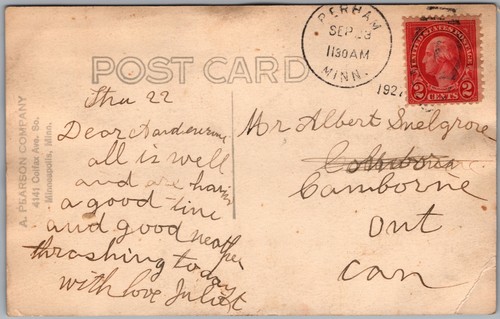 PERHAM
SEP 23
1130AM
MINN.
1927
UNITED STATES POSTAGE
2 CENTS 2
POST CARD
A. PEARSON COMPANY
4141 Colfax Ave. So.
Minneapolis, Minn.
Thu 22
Dear
all is well
and are having
a good time
and good weather
thrashing today
with love Juliet
Mr Albert Snelgrove
Camborne
Ont
Can